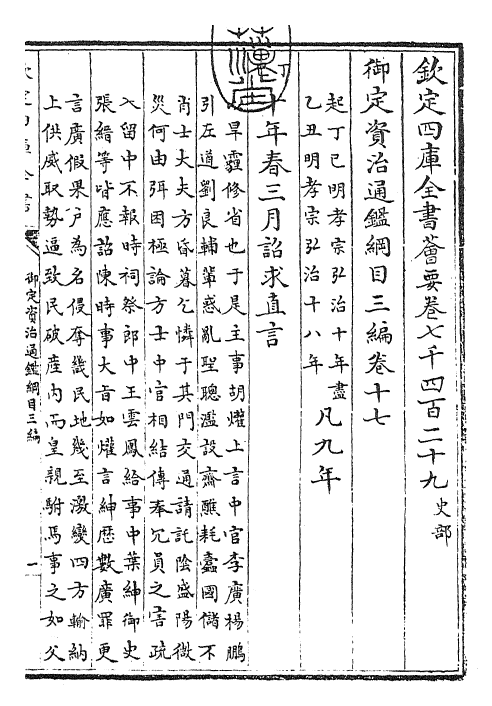 欽定四庫全書薈要卷七千四百二十九 史部
御定資治通鑑綱目三編卷十七
起丁巳明孝宗弘治十年盡
乙丑明孝宗弘治十八年
凡九年
十年春三月詔求直言
旱霾修省也于是主事胡爟上言中官李廣楊鵬
引左道劉良輔輩惑亂聖聰濫設齋醮耗蠹國儲不
肖士大夫方昏暮乞憐于其門交通請託陰盛陽微
災何由弭因極論方士中官相結傳奉冗員之害疏
入留中不報時祠祭郎中王雲鳳給事中葉紳御史
張縉等皆應詔陳時事大旨如爟言紳歷數廣罪更
言廣假果戶為名侵奪畿民地幾至激變四方輸納
上供威取勢逼致民破產內而皇親駙馬事之如父
御定資治通鑑綱目三編
一